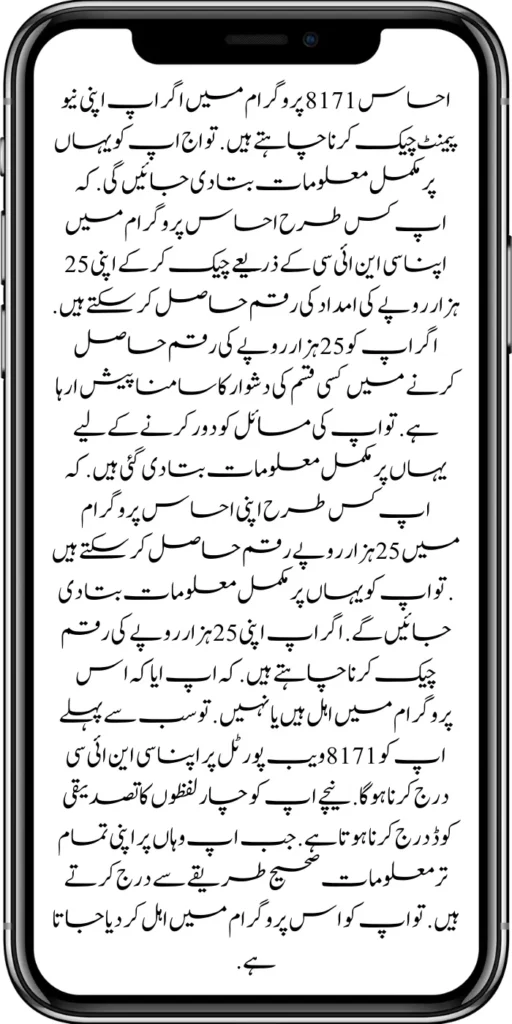 احساس 8171 پروگرام میں اگر اپ اپنی نیو
پیمنٹ چیک کرنا چاہتے ہیں. تو اج اپ کو یہاں
پر مکمل معلومات بتا دی جائیں گی. کہ
اپ کس طرح احساس پروگرام میں
اپنا سی این ائی سی کے ذریعے چیک کر کے اپنی 25
ہزار روپے کی امداد کی رقم حاصل کر سکتے ہیں.
اگر اپ کو 25 ہزار روپے کی رقم حاصل
کرنے میں کسی قسم کی دشوار کا سامنا پیش ارہا
ہے. تو اپ کی مسائل کو دور کرنے کے لیے
یہاں پر مکمل معلومات بتا دی گئی ہیں. کہ
اپ کس طرح اپنی احساس پروگرام
میں 25 ہزار روپے رقم حاصل کر سکتے ہیں
. تو اپ کو یہاں پر مکمل معلومات بتا دی
جائیں گے. اگر اپ اپنی 25 ہزار روپے کی رقم
چیک کرنا چاہتے ہیں. کہ اپ ایا کہ اس
پروگرام میں اہل ہیں یا نہیں. تو سب سے پہلے
اپ کو 8171 ویب پورٹل پر اپنا سی این ائی سی
درج کرنا ہوگا. نیچے اپ کو چار لفظوں کا تصدیقی
کوڈ درج کرنا ہوتا ہے. جب اپ وہاں پر اپنی تمام
تر معلومات صحیح طریقے سے درج کرتے
ہیں. تو اپ کو اس پروگرام میں اہل کر دیا جاتا
ہے.